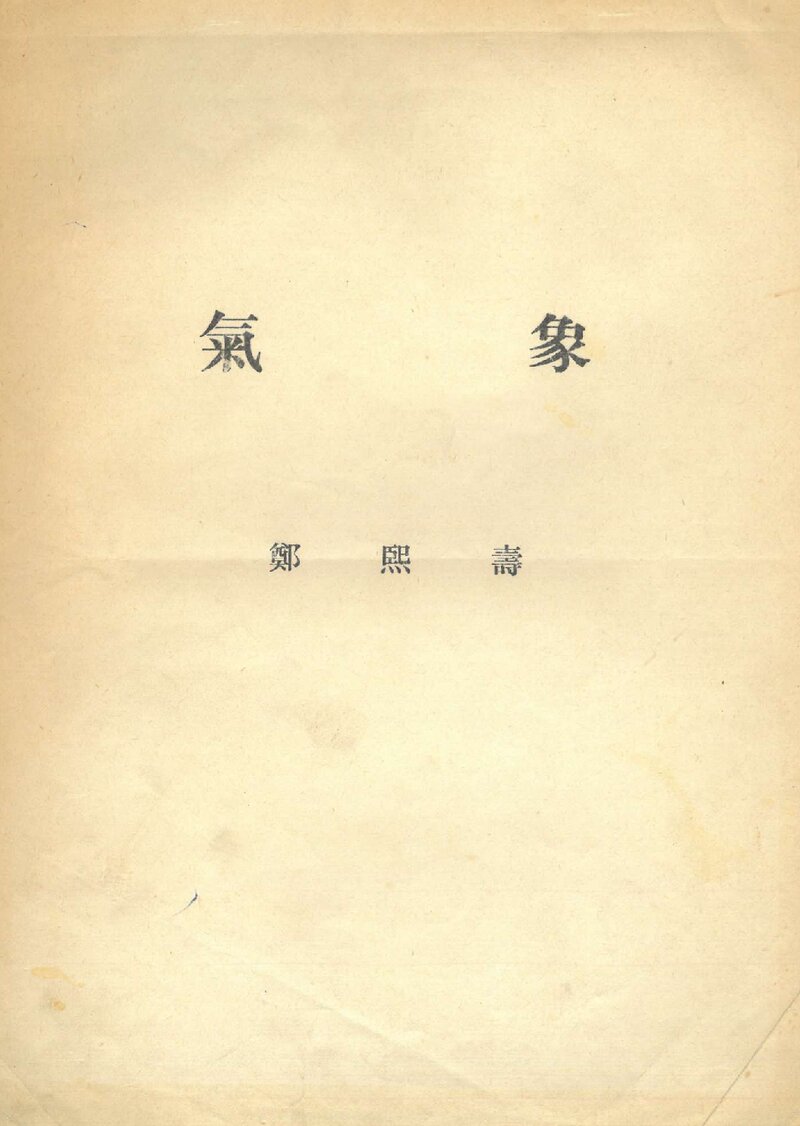 氣象
鄭熙壽